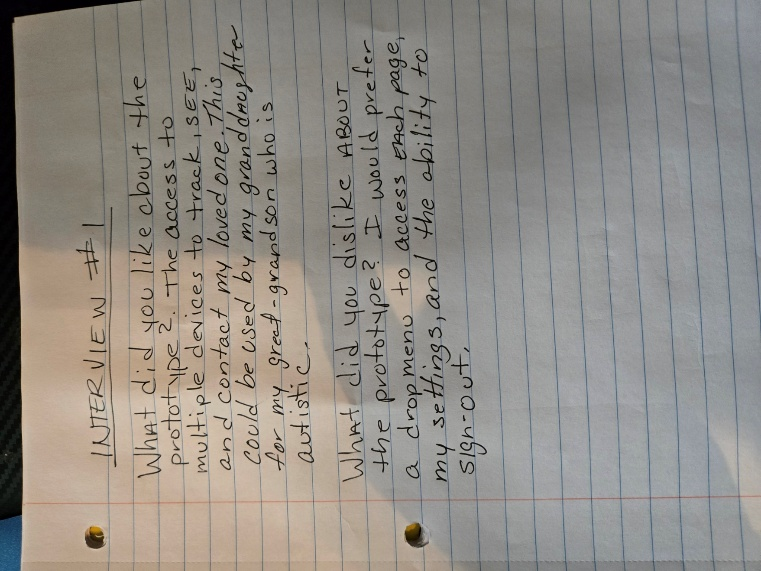 INTERVIEW #1
What did you like about the
prototype? The access to
multiple devices to track, SEE,
and contact my loved one. This
could be used by my granddaughter
for my great-grandson who is
autistic.
What did you dislike ABOUT
the prototype? I would prefer
a drop menu to access EACH page,
my settings, and the ability to
sign-out.